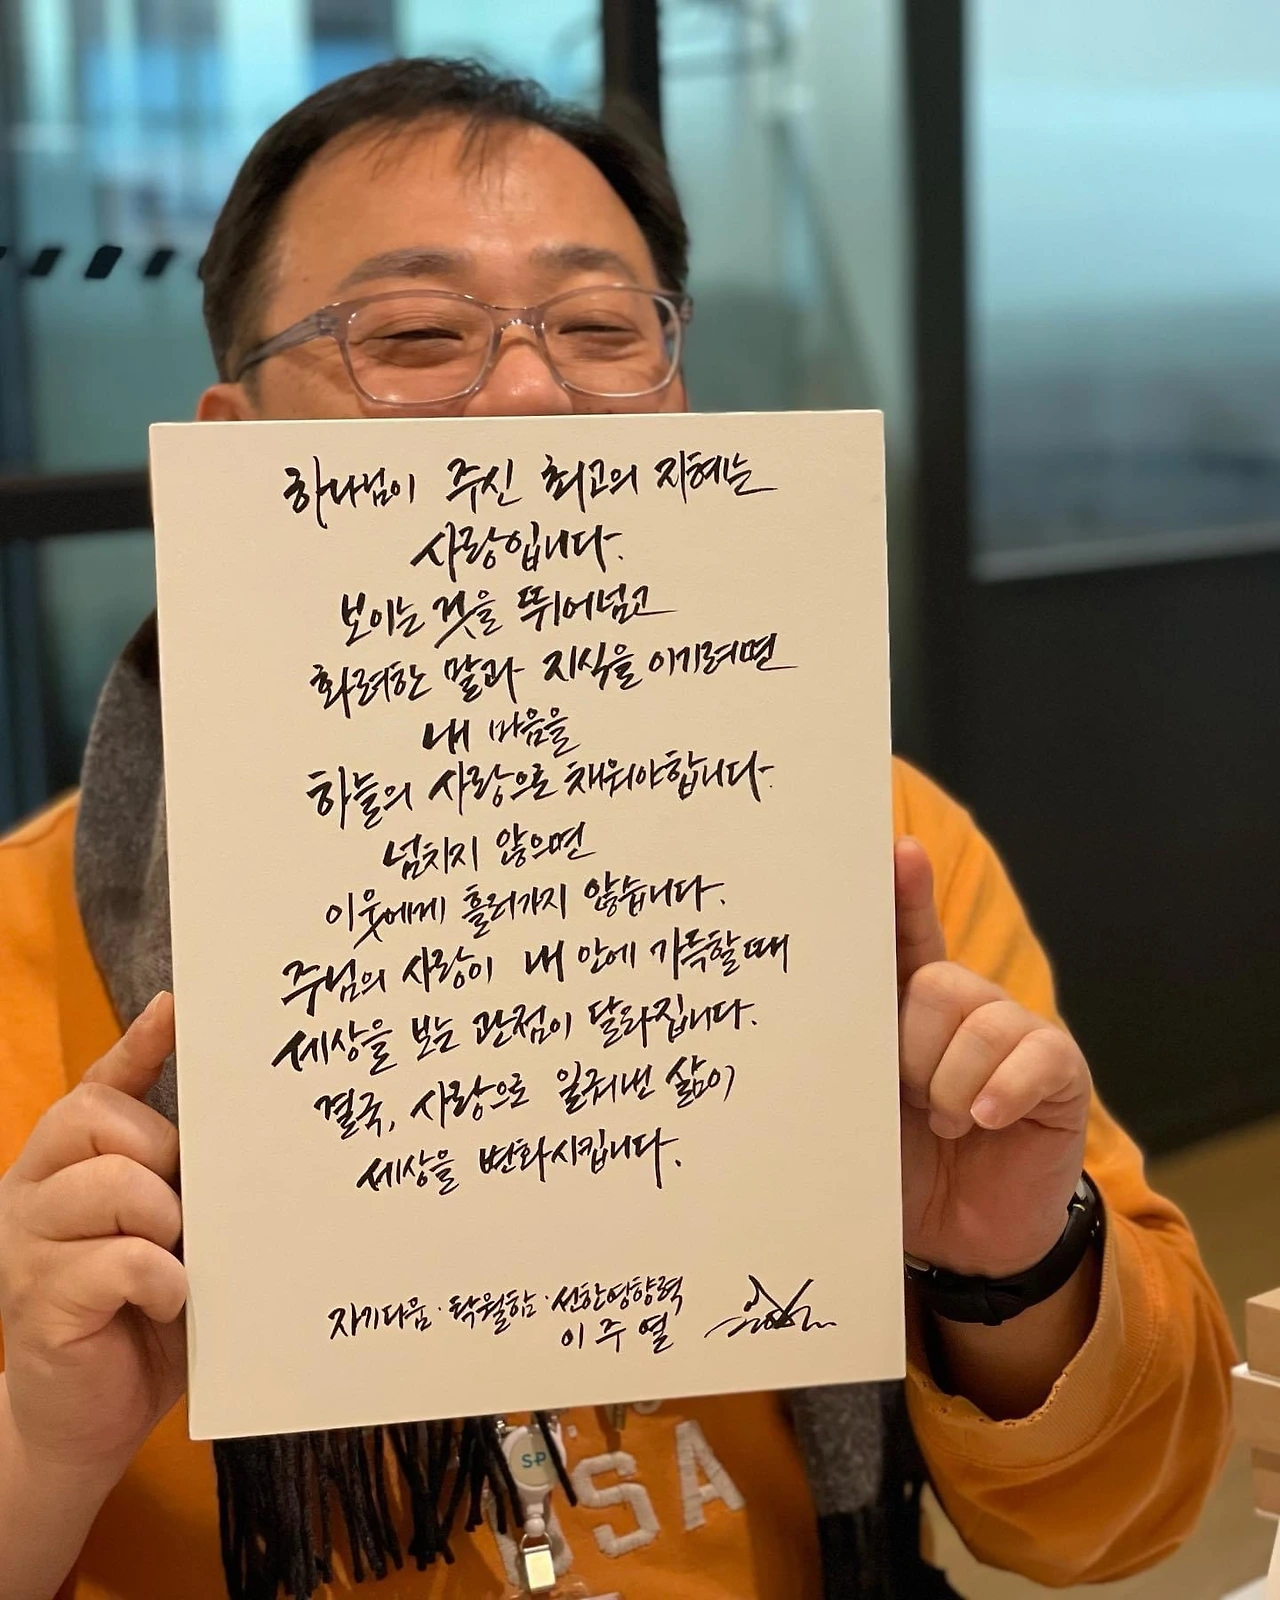 하나님이 주신 최고의 지혜는
사랑입니다.
보이는 것을 뛰어넘고
화려한 말과 지식을 이기려면
내 마음을
하늘의 사랑으로 채워야합니다.
넘치지 않으면
이웃에게 흘러가지 않습니다.
주님의 사랑이 내 안에 가득할 때
세상을 보는 관점이 달라집니다.
결국, 사랑으로 일궈낸 삶이
세상을 변화시킵니다.
자기다움·탁월함·선한영향력
이주열
S-P
USA